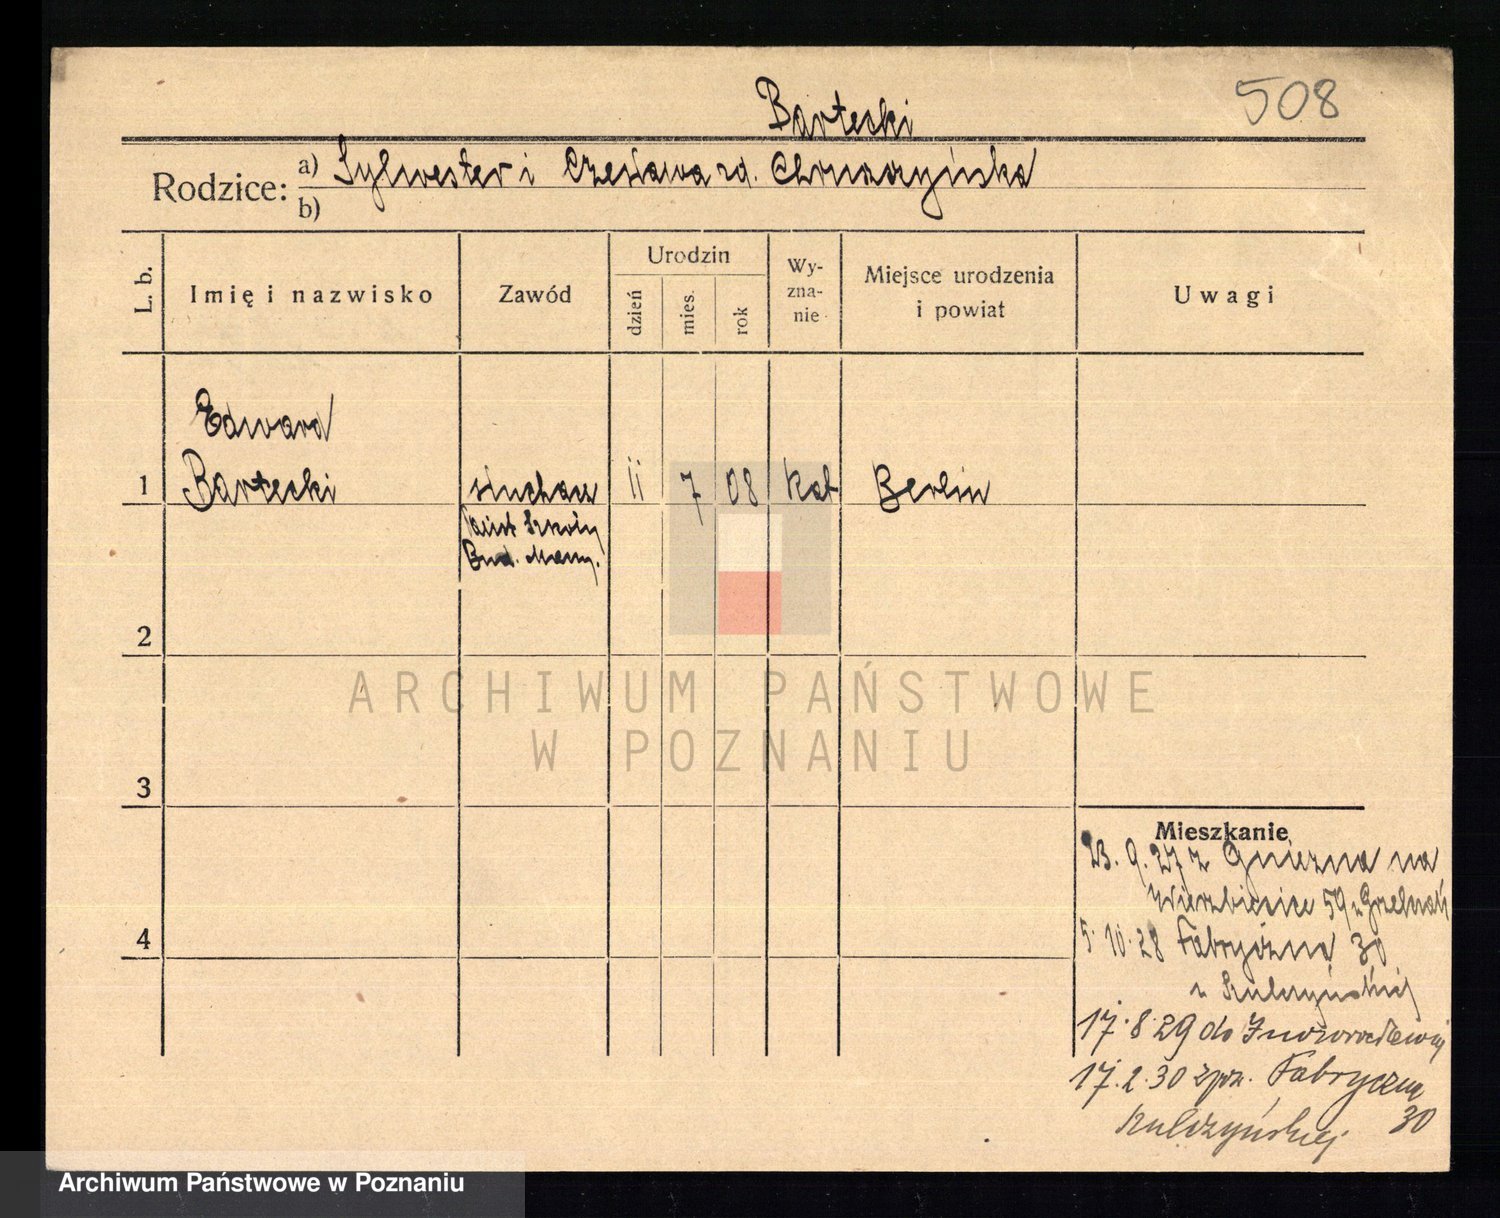 508
Bartecki
Rodzice: a) Sylwester i Czesława zd. Chruszczyńska
b)
L. b.
Imię i nazwisko
Zawód
Urodzin
dzień
mies.
rok
Wy-
zna-
nie
Miejsce urodzenia
i powiat
Uwagi
Edward
1 Bartecki słuchacz 11 7 08 kat Berlin
Państ Szkoły
Bud. Masz.
2
ARCHIWUM PAŃSTWOWE
W POZNANIU
3
Mieszkanie
23. 9. 27 z Gniezna na
Wierzbięcice 59 u
4
5. 10. 28 Fabryczna 30
u Kulczyńskiej
17. 8. 29 do
17. 2. 30 zpn. Fabryczna
30
Kulczyńskiej
Archiwum Państwowe w Poznaniu